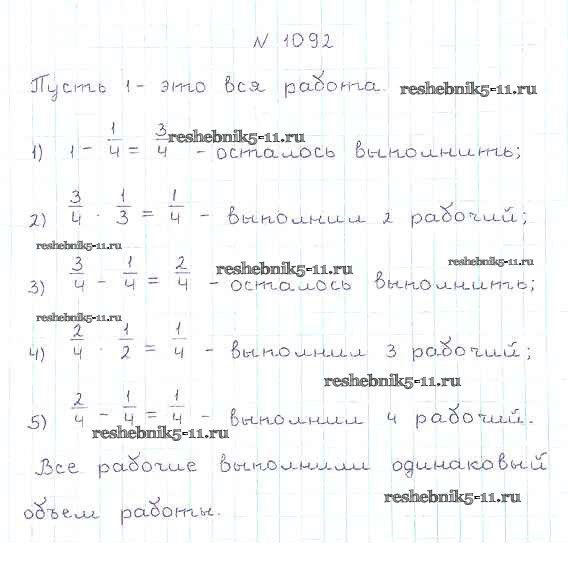 N 1092
Пусть 1 - это вся работа. reshebnik5-11.ru
1) 1 - 1/4 = 3/4 - осталось выполнить; reshebnik5-11.ru
2) 3/4 · 1/3 = 1/4 - выполнил 2 рабочий;
reshebnik5-11.ru
3) 3/4 - 1/4 = 2/4 - осталось выполнить; reshebnik5-11.ru reshebnik5-11.ru
reshebnik5-11.ru
4) 2/4 · 1/2 = 1/4 - выполнил 3 рабочий;
reshebnik5-11.ru
5) 2/4 - 1/4 = 1/4 - выполнил 4 рабочий.
reshebnik5-11.ru
Все рабочие выполнили одинаковый
объем работы. reshebnik5-11.ru